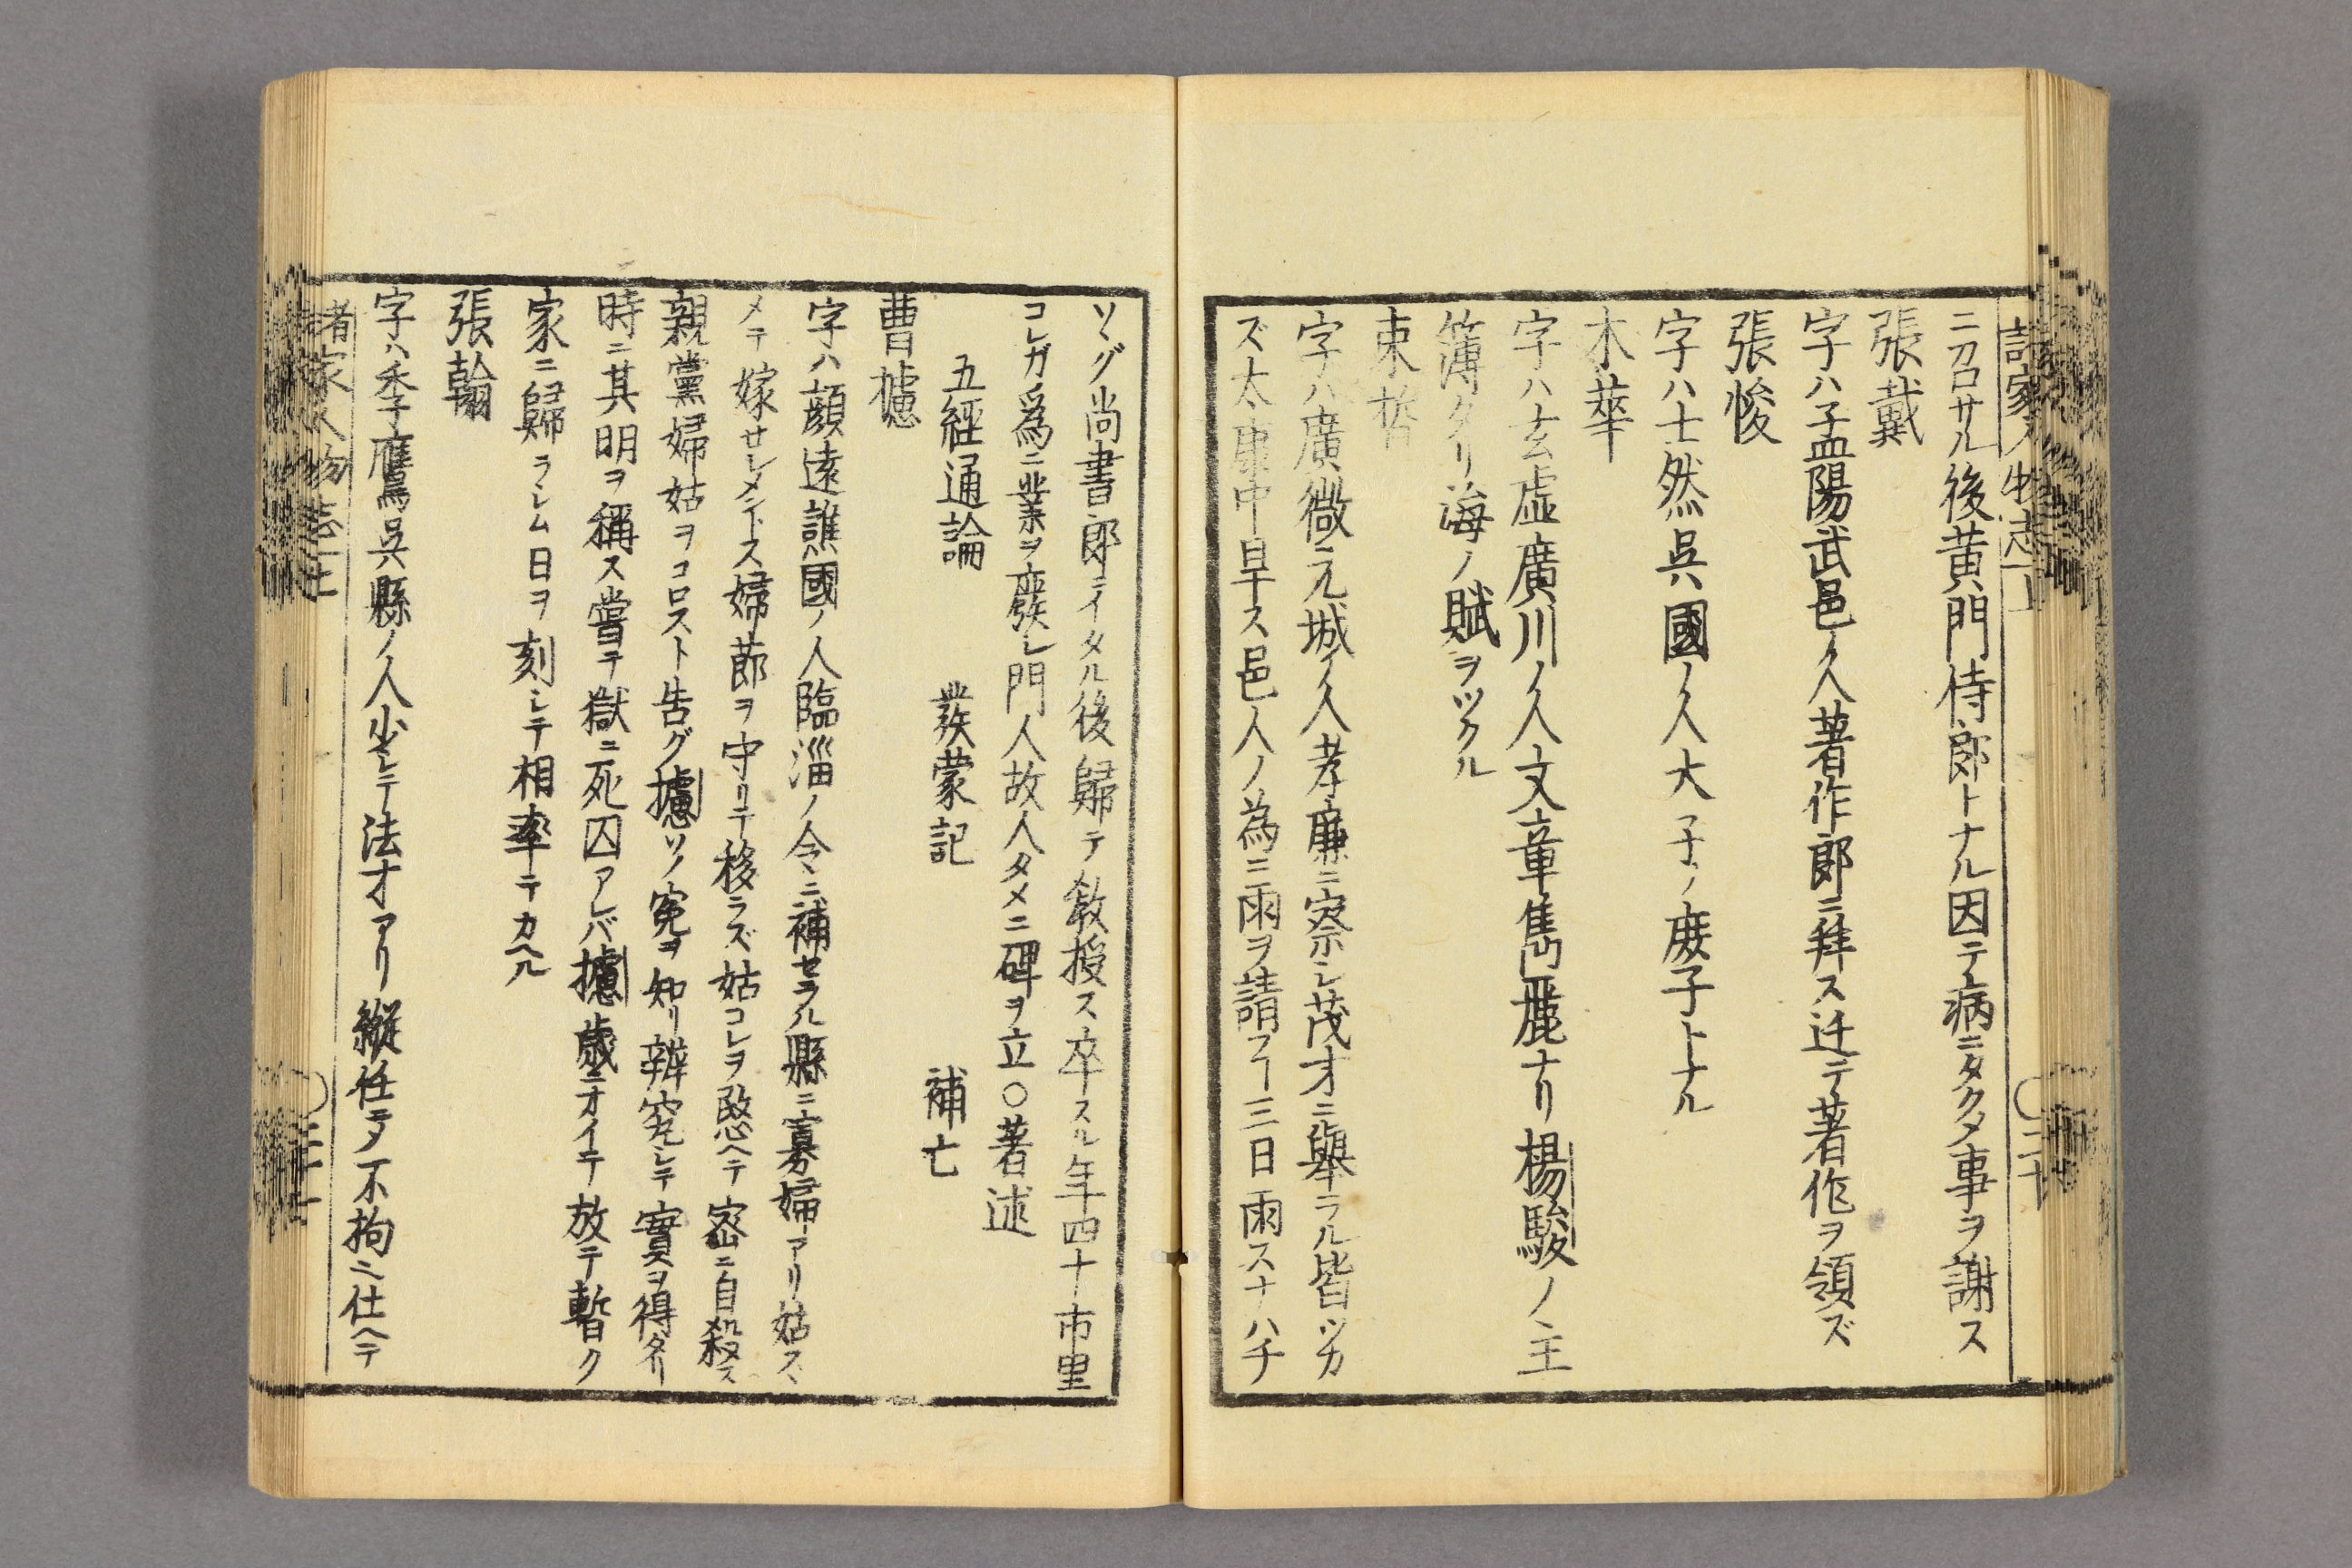 二召サル後黄門侍郎トナル因テ病ニタクメ事ヲ謝ス
張戴
字ハ子孟陽武邑ノ人著作郎ニ拜ス迁テ著作ヲ領ズ
張悛
字ハ士然呉國ノ人大子ノ庻子トナル
木華
字ハ玄虚廣川ノ人文章雋麗ナリ楊駿ノ主
簿タリ海ノ賦ヲツクル
束皙
字ハ廣微元城ノ人孝廉ニ察シ茂才ニ舉ラル皆ツカ
ズ太康中旱ス邑人ノ為ニ雨ヲ請フ丁三日雨スナハチ
ソヽグ尚書郎ニイタル後歸テ敎授ス卒スル年四十市里
コレガ爲ニ業ヲ廢シ門人故人タメニ碑ヲ立○著述
五經通論 發蒙記 補亡
曹攄
字ハ顔遠譙國ノ人臨淄ノ令ニ補セラル縣ニ寡婦アリ姑スヽ
メテ嫁サシメントス婦節ヲ守リテ移ラズ姑コレヲ愍ヘテ密ニ自殺ス
親黨婦姑ヲコロスト告グ攄ソノ寃ヲ知リ辨究シテ實ヲ得タリ
時ニ其明ヲ稱ス嘗テ獄ニ死囚アレバ攄歳ニオイテ放テ暫ク
家ニ歸ラシム日ヲ刻シテ相率テカヘル
張翰
字ハ季鷹呉縣ノ人少シテ清才アリ縱任ニメ不拘ニ仕ヘテ
諸家人物志上